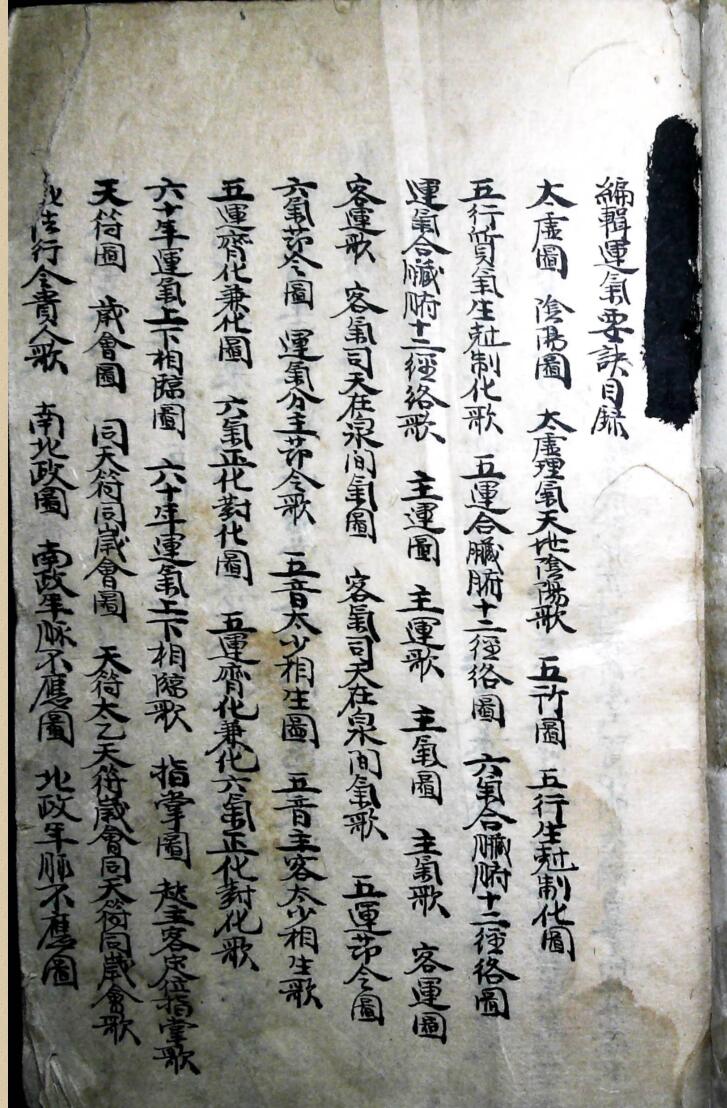 編輯運氣要訣目錄
太虛圖 陰陽圖 太虛理氣天地陰陽歌 五行圖 五行生尅制化圖
五行質氣生尅制化歌 五運合臟腑十二徑絡圖 六氣合臟腑十二徑絡圖
運氣合臟腑十二徑絡歌 主運圖 主運歌 主氣圖 主氣歌 客運圖
客運歌 客氣司天在泉间氣圖 客氣司天在泉间氣歌 五運节令圖
六氣节令圖 運氣分主节令歌 五音太少相生圖 五音主客太少相生歌
五運齊化兼化圖 六氣正化對化圖 五運齊化兼化六氣正化對化歌
六十年運氣上下相臨圖 六十年運氣上下相臨歌 指掌圖 起主客定位指掌歌
天符圖 歲會圖 同天符同歲會圖 天符太乙天符歲會同天符同歲會歌
行令貴人歌 南北政圖 南政年脉不應圖 北政年脉不應圖